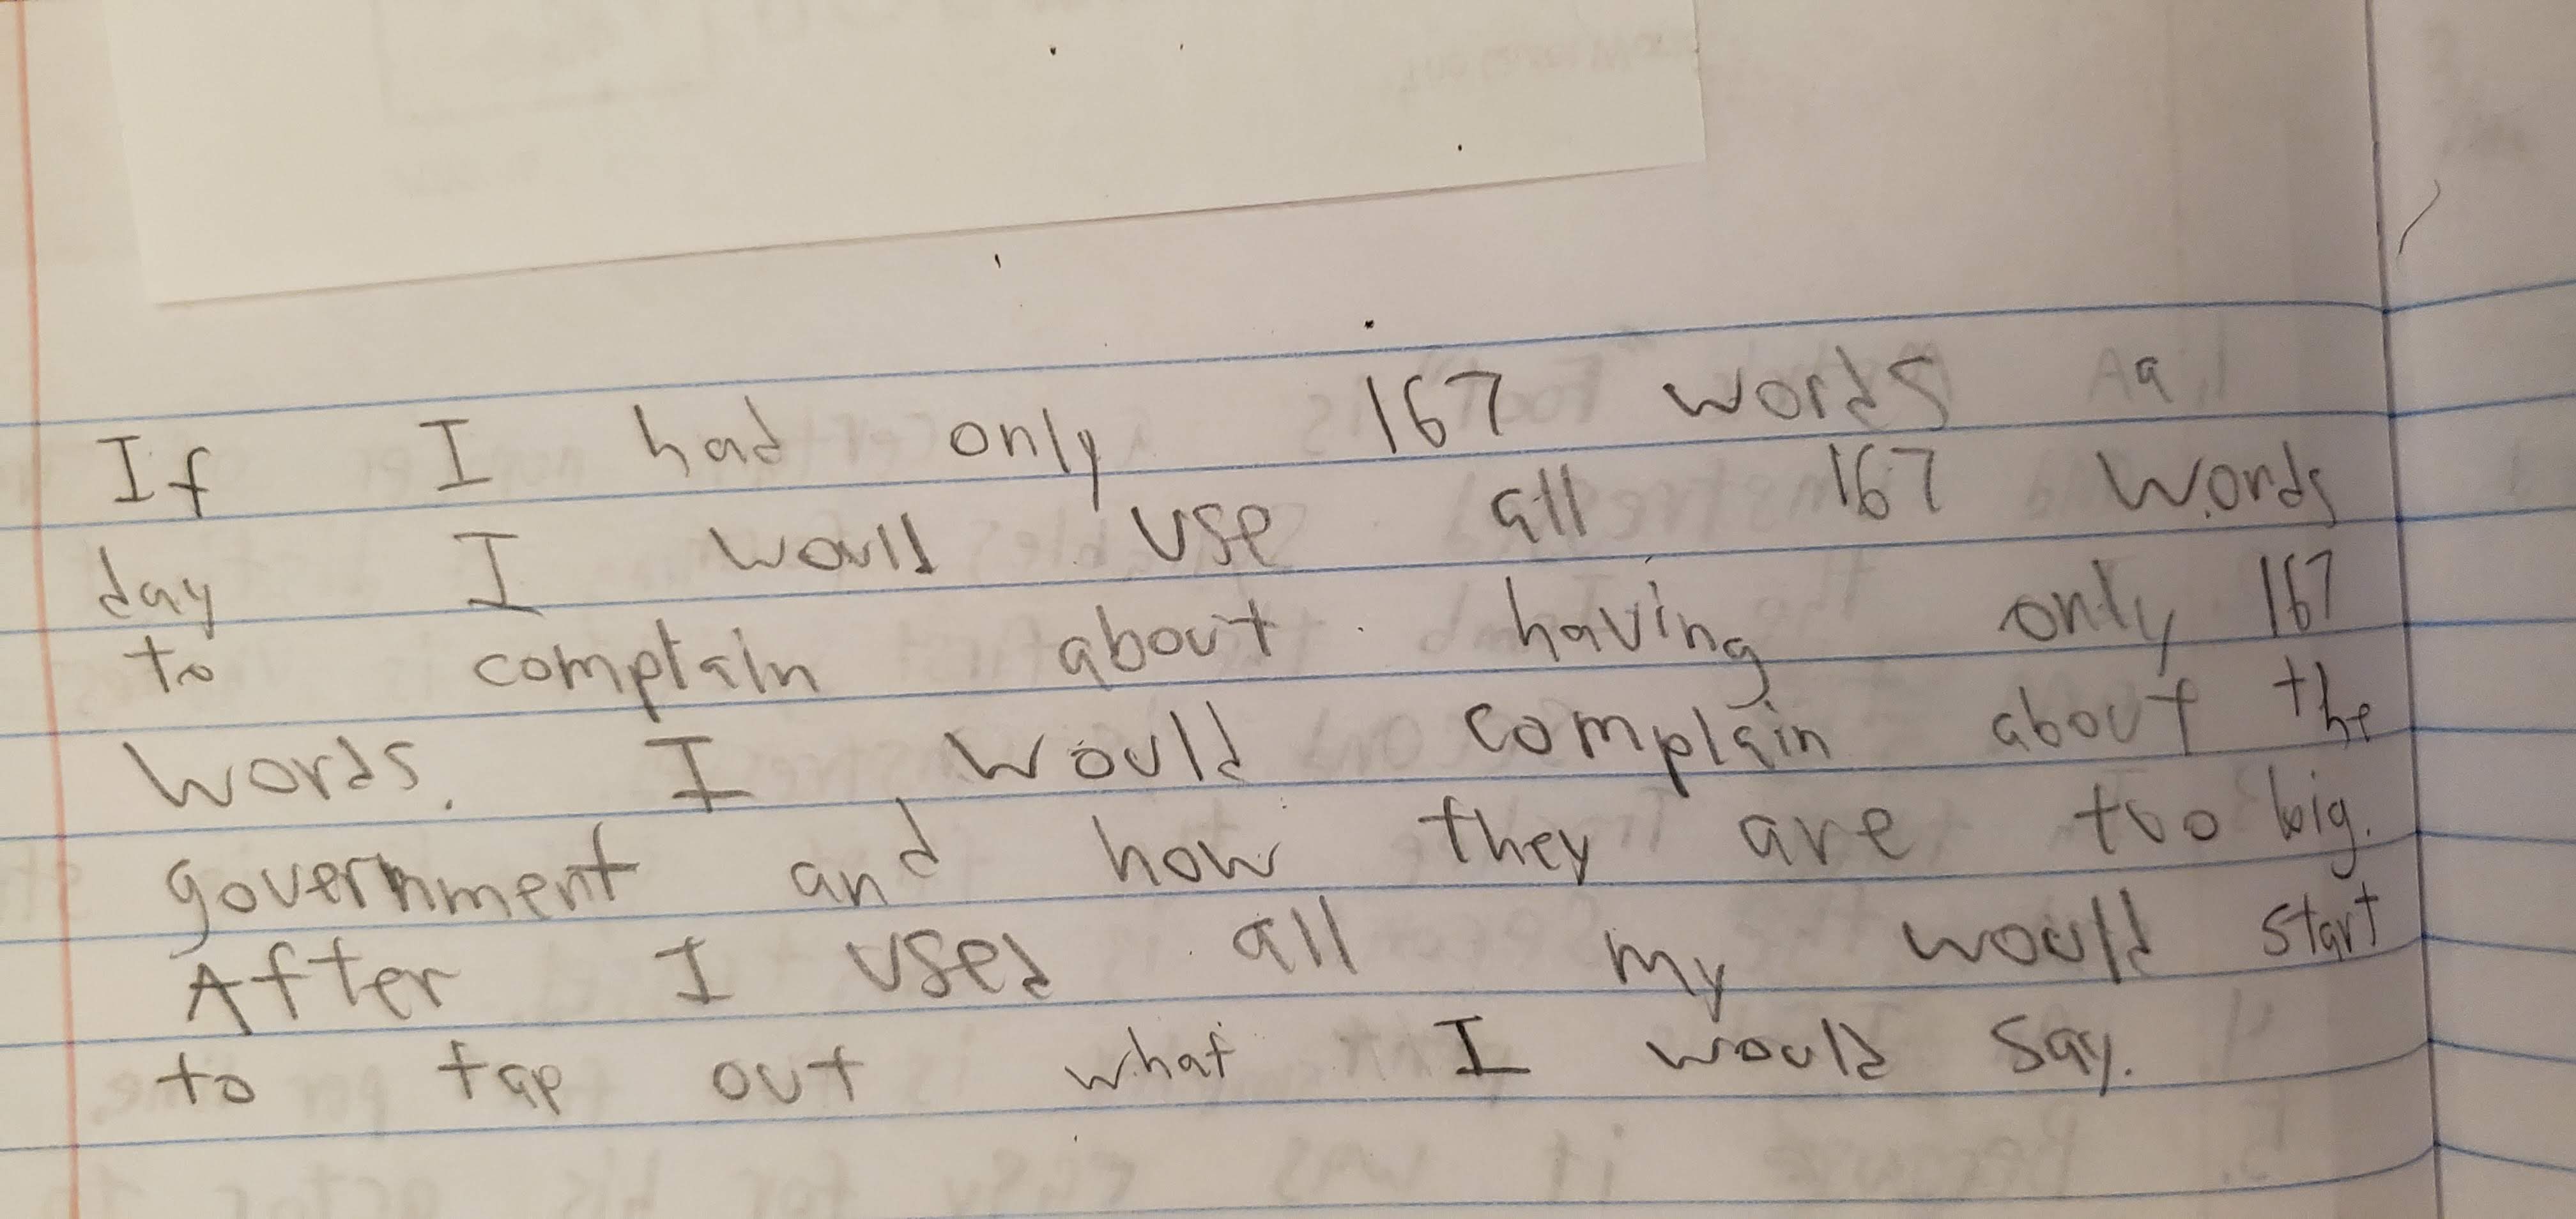 If I had only 167 words
day I woull use all 167 words
to complain about having only 167
words. I would complain about the
government and how they are too big.
After I used all my would start
to tap out what I would say.